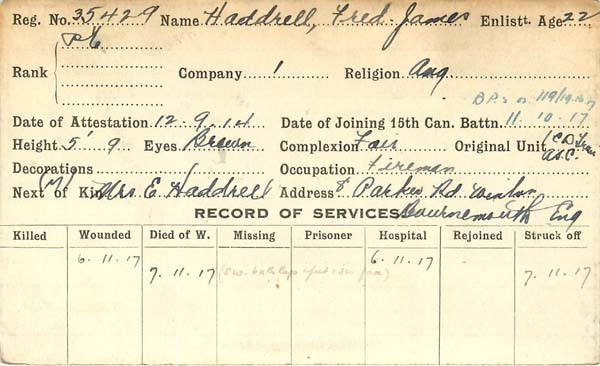 Reg. No. 35429 Name Haddrell, Fred James Enlistt. Age 22
Pte
Rank Company 1 Religion Ang
Date of Attestation 12-9.14 Date of Joining 15th Can. Battn. 11.10.17
Height 5' 9 Eyes Brown Complexion Fair Original Unit
Decorations Occupation Fireman
Next of Kin (M) Mrs E. Haddrell Address Parker Rd. Winton
RECORD OF SERVICES Bournemouth Eng
Killed Wounded Died of W. Missing Prisoner Hospital Rejoined Struck off
6.11.17 6.11.17
7.11.17 7.11.17